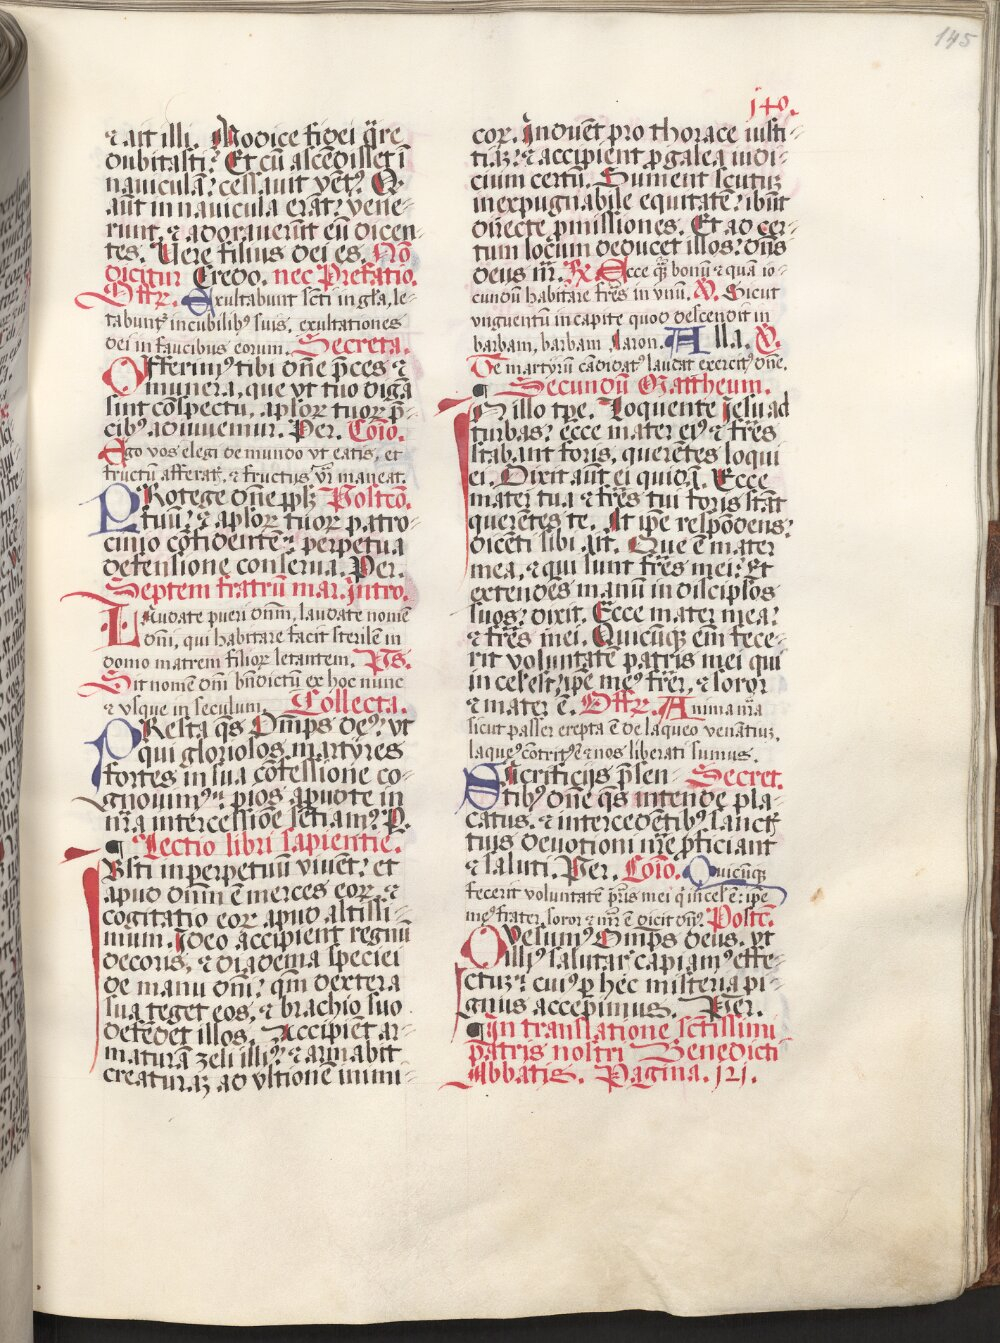 145
140.
⁊ ait illi. Modice fidei q̄re
dubitasti? Et cū ascēdisset ī
nauiculā: cessauit vētꝰ. Qi
aūt in nauicula erāt: vene-
runt, ⁊ adorauerūt eū dicen
tes. Vere filius dei es. Nō
dicitur Credo. nec Prefatio.
Offr. Exultabunt sc̄ti in gl̄a, le-
tabunt᷑ in cubilibꝰ suis. exultationes
dei in faucibus eorum. Secreta.
Offerimꝰ tibi dn̄e p̄ces ⁊
munera, que vt tuo digā
sint cōspectu, aplōꝝ tuoꝝ p̄-
cibꝰ adiuuemur. Per. Cōio.
Ego vos elegi de mundo vt eatis, et
fructū afferat᷑, ⁊ fructus vr̄ maneat.
PRotege dn̄e pplꝫ Postcō.
tuū: ⁊ aplōꝝ tuoꝝ patro-
cinio cōfidentē: perpetua
defensione conserua. Per.
Septem fratrū mar. Intro.
Laudate pueri dn̄m, laudate nomē
dn̄i, qui habitare facit sterilē in
domo matrem filioꝝ letantem. Ps.
Sit nomē dn̄i bn̄dictū ex hoc nunc
⁊ vsque in seculum. Collecta.
PResta q̄s Om̄ps deꝰ: vt
qui gloriosos martyres
fortes in sua cōfessione co-
gnouimꝰ: pios apud te in
nr̄a intercessione sētiamꝰ. P.
¶ Lectio libri sapientie.
IUsti in perpetuū viuēt: et
apud dn̄m ē merces eoꝝ. ⁊
cogitatio eoꝝ apud altissi-
mum. Ideo accipient regnū
decoris, ⁊ diadema speciei
de manu dn̄i: qm̄ dextera
sua teget eos, ⁊ brachio suo
defēdet illos. Accipiēt ar-
maturā zeli illiꝰ: ⁊ armabit
creaturaꝫ ad vltionē inimi-
coꝝ. Induēt pro thorace iusti-
tiaꝫ: ⁊ accipient p galea iudi-
cium certū. Sument scutuꝫ
inexpugnabile equitatē: ibūt
directe pmissiones. Et ad cer-
tum locum deducet illos: dn̄s
deus nr̄. R. Ecce qꝫ bonū ⁊ quā io-
cundū habitare fr̄es in vnū. V. Sicut
vnguentū in capite quod descendit in
barbam, barbam Aaron. Alla. V.
Te martyrū cādidat᷑ laudat exercitꝰ dn̄e.
¶ Secundū Mattheum.
IN illo tpe. Loquente Iesu ad
turbas: ecce mater eiꝰ ⁊ fr̄es
stabant foris, querētes loqui
ei. Dixit aūt ei quidā. Ecce
mater tua ⁊ fr̄es tui foris stāt
querētes te. At ip̄e respōdens:
dicēti sibi ait. Que ē mater
mea, ⁊ qui sunt fr̄es mei: Et
extendēs manū in discip̄los
suos: dixit. Ecce mater mea:
⁊ fr̄es mei. Quicūqꝫ em̄ fece-
rit voluntatē patris mei qui
in cel᷑ est: ip̄e meꝰ frer, ⁊ soror
⁊ mater ē. Offr. Anima nr̄a
sicut passer erepta ē de laqueo venātiuꝫ.
laqueꝰ cōtritꝰ ē ⁊ nos liberati sumus.
SAcrificijs p̄sen- Secret.
tibꝰ dn̄e q̄s intende pla-
catus. ⁊ intercedētibꝰ sanct᷑
tuis deuotioni nr̄e p̄ficiant
⁊ saluti. Per. Cōio. Quicūqꝫ
fecerit voluntatē pr̄is mei q in cel᷑ ē: ip̄e
meꝰ frater, soror ⁊ mr̄ ē dicit dn̄s. Postc̄.
QVesumꝰ Om̄ps deus. vt
illiꝰ salutar᷑ capiamꝰ effe-
ctuꝫ: cuiꝰ p hec misteria pi-
gnus accepimus. Per.
¶ In translatione sc̄tissimi
patris nostri Benedicti
Abbatis. Pagina. 121.